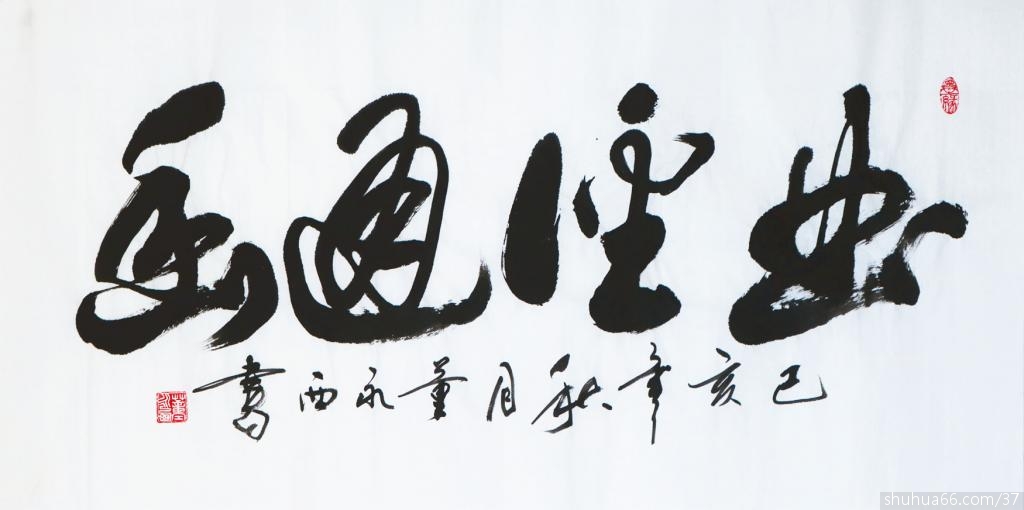 曲径通幽
己亥年秋月董永西書
shuhua66.com/37